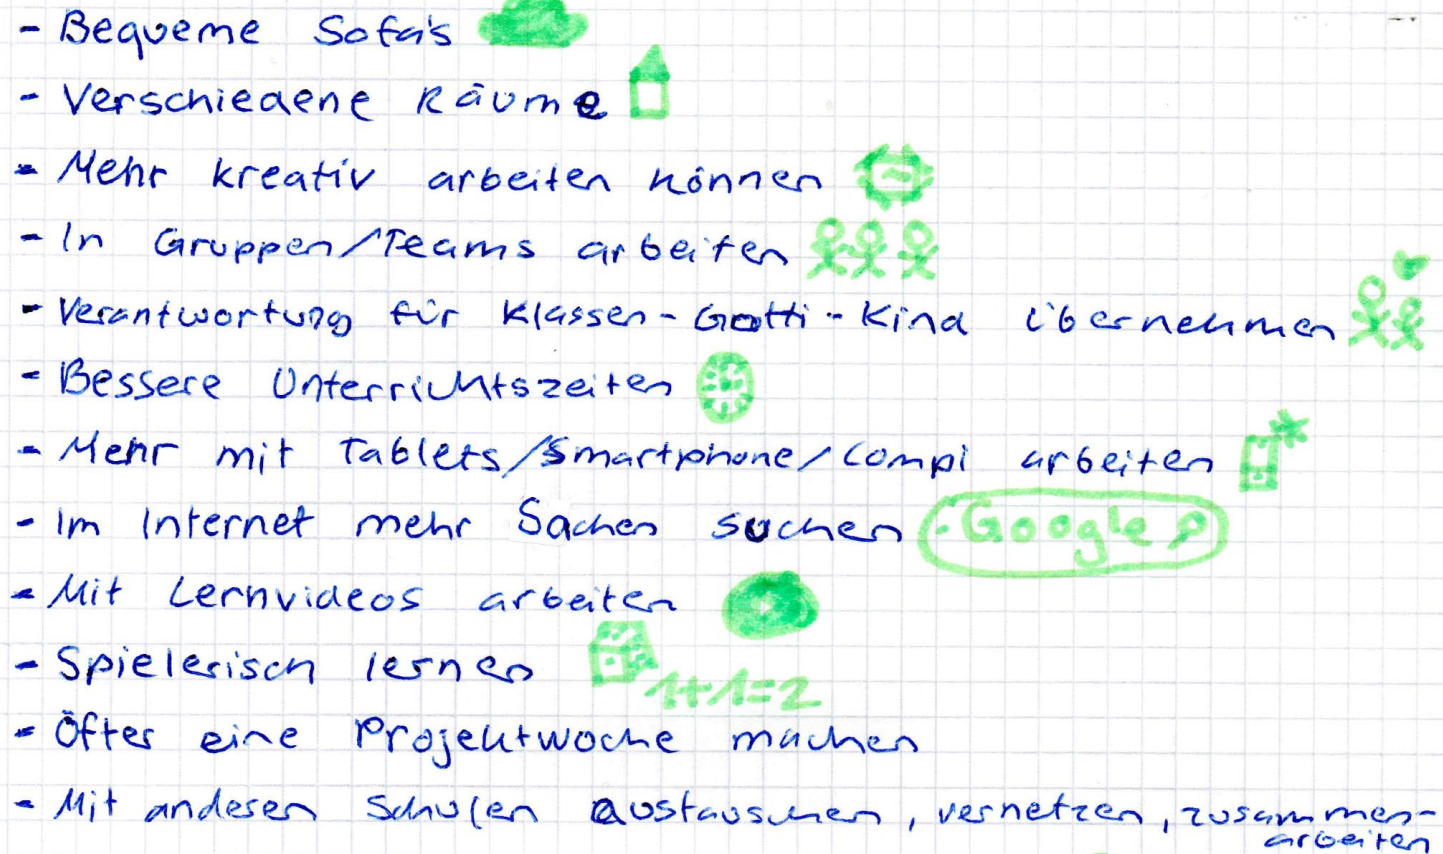 - Bequeme Sofa's
- Verschiedene Räume
- Mehr kreativ arbeiten können
- In Gruppen/Teams arbeiten
- Verantwortung für Klassen-Gotti-Kind übernehmen
- Bessere Unterrichtszeiten
- Mehr mit Tablets/Smartphone/Compi arbeiten
- Im Internet mehr Sachen suchen Google
- Mit Lernvideos arbeiten
- Spielerisch lernen
1+1=2
- Öfter eine Projektwoche machen
- Mit anderen Schulen austauschen, vernetzen, zusammen-
arbeiten